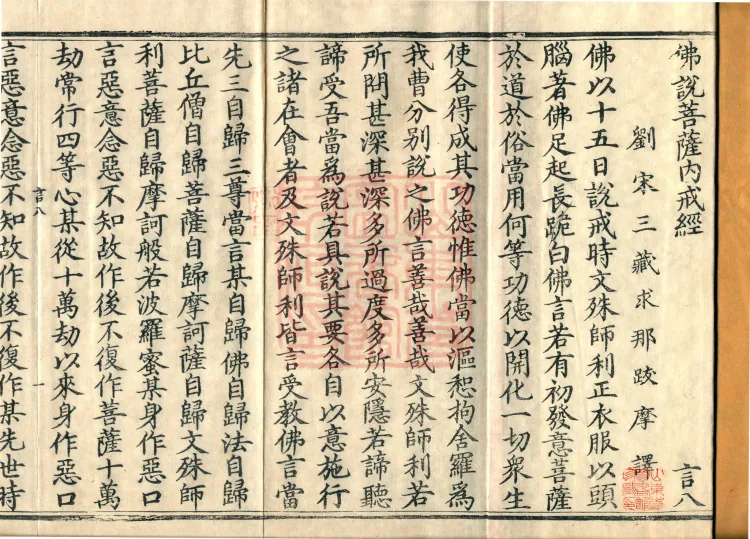 佛說菩薩內戒經 言八
劉宋三藏求那跋摩譯
佛以十五日說戒時文殊師利正衣服以頭
腦著佛足起長跪白佛言若有初發意菩薩
於道於俗當用何等功德以開化一切衆生
使各得成其功德惟佛當以漚惒拘舍羅爲
我曹分別說之佛言善哉善哉文殊師利若
所問甚深甚深多所過度多所安隱若諦聽
諦受吾當爲說若具說其要各自以意施行
之諸在會者及文殊師利皆言受教佛言當
先三自歸三尊當言某自歸佛自歸法自歸
比丘僧自歸菩薩自歸摩訶薩自歸文殊師
利菩薩自歸摩訶般若波羅蜜某身作惡口
言惡意念惡不知故作後不復作菩薩十萬
劫常行四等心某從十萬劫以來身作惡口
言八 一
言惡意念惡不知故作後不復作某先世時